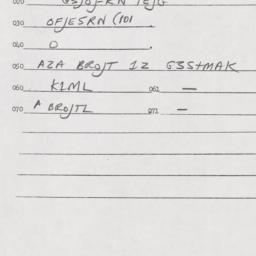 030 OFJESRN (101
040 O
050 AZA BROJT 12 G3S+MAK
060 K1ML 062 —
070 A BROJTL 072 —